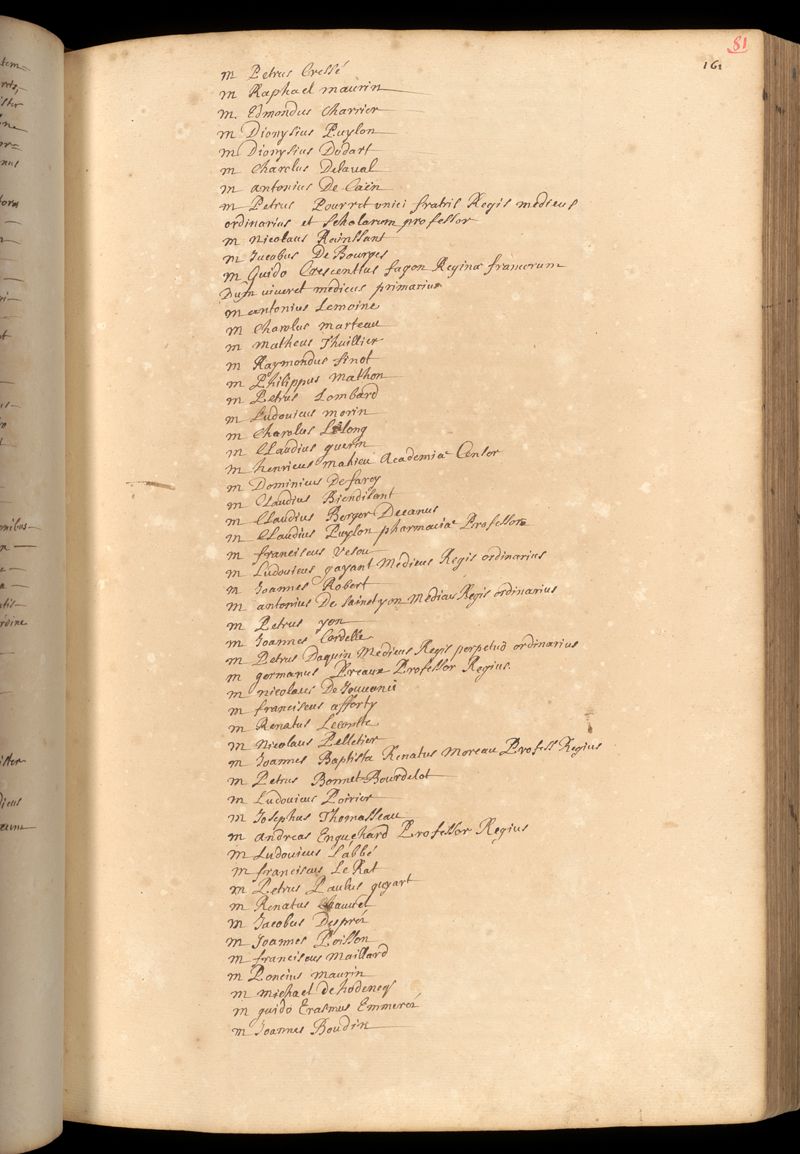 81
161
m Petrus Cressé
m Raphael maurin
m. Edmondus Charrier
m Dionysius Puylon
m Dionysius Dodart
m Charolus Delaval
m antonius De Caën
m Petrus Pourret unici fratris Regis medicus
ordinarius et scholarum professor
m Nicolaus Rainssant
m Jacobus De Bourges
m Guido Crescentius fagon Reginæ francorum
Dum viveret medicus primarius
m antonius Lemoine
m Charolus marteau
m Matheus Thuillier
m Raymondus finot
m Philippus Mathon
m Petrus Lombard
m Ludovicus morin
m Charolus Lelong
m Claudius guerin
m henricus mahieu Academiæ Censor
m Dominicus De farcy
m Claudius Biendisant
m Claudius Berger Decanus
m Claudius Puylon pharmaciæ Professor
m franciscus Vesou
m Ludovicus gayant Medicus Regis ordinarius
m Joannes Robert
m antonius De sainctyon Medicus Regis ordinarius
m Petrus yon
m Joannes Cordelle
m Petrus Daquin Medicus Regis perpetuò ordinarius
m germanus Preaux Professor Regius
m nicolaus De Jouvanci
m franciscus afforty
m Renatus Lecontte
m Nicolaus Pelletier
m Joannes Baptista Renatus Moreau Profess Regius
m Petrus Bonnet Bourdelot
m Ludovicus Poirier
m Josephus Thomasseau
m andreas Enguehard Professor Regius
m Ludovicus Labbé
m franciscus Le Rat
m Petrus Paulus guyart
m Renatus
m Jacobus Desprez
m Joannes Poisson
m franciscus Maillard
m Poncius maurin
m michael de hodencq
m guido Erasmus Emmerez
m Joannes Boudin